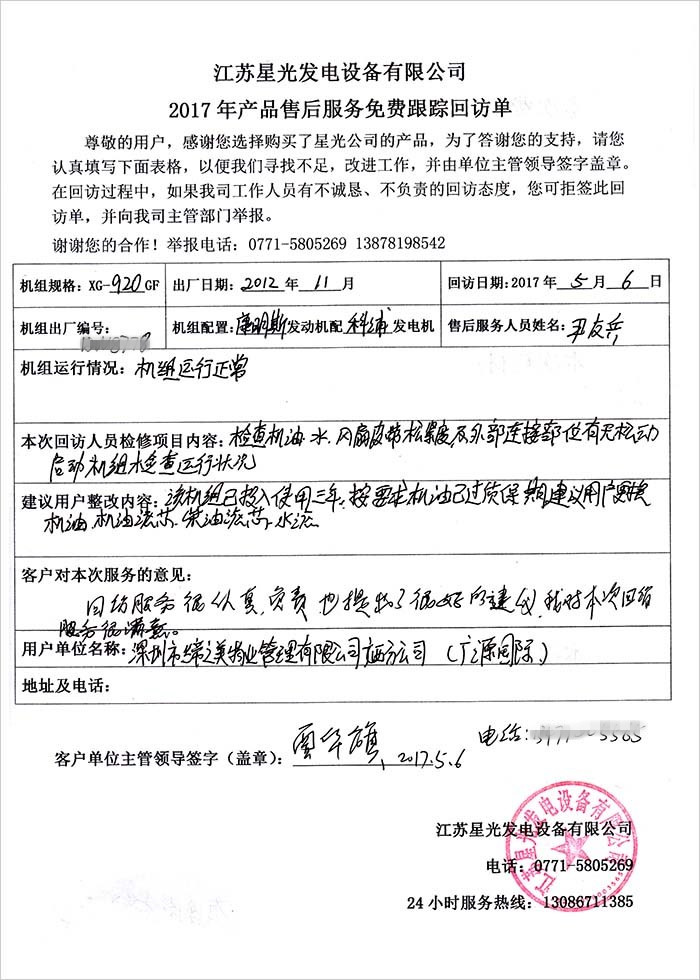 江苏星光发电设备有限公司
2017年产品售后服务免费跟踪回访单
尊敬的用户，感谢您选择购买了星光公司的产品，为了答谢您的支持，请您
认真填写下面表格，以便我们寻找不足，改进工作，并由单位主管领导签字盖章。
在回访过程中，如果我司工作人员有不诚恳、不负责的回访态度，您可拒签此回
访单，并向我司主管部门举报。
谢谢您的合作！举报电话：0771-5805269 13878198542
机组规格：XG-920GF 出厂日期：2012年11月 回访日期：2017年5月6日
机组出厂编号： 机组配置：康明斯发动机配科浦发电机 售后服务人员姓名：尹友兵
机组运行情况：机组运行正常
本次回访人员检修项目内容：检查机油、水、风扇皮带松紧度及外部连接部位有无松动
启动机组检查运行状况
建议用户整改内容：该机组已投入使用三年，按要求机油已过质保期建议用户更换
机油、机油滤芯、柴油滤芯、水滤
客户对本次服务的意见：
回访服务很认真，负责也提出了很好的建议，我对本次回访
服务很满意。
用户单位名称：深圳市缔之美物业管理有限公司广西分公司（广源国际）
地址及电话：
客户单位主管领导签字（盖章）： 2017.5.6
电话：
江苏星光发电设备有限公司
电话：0771-5805269
24小时服务热线：13086711385
江苏星光发电设备有限公司